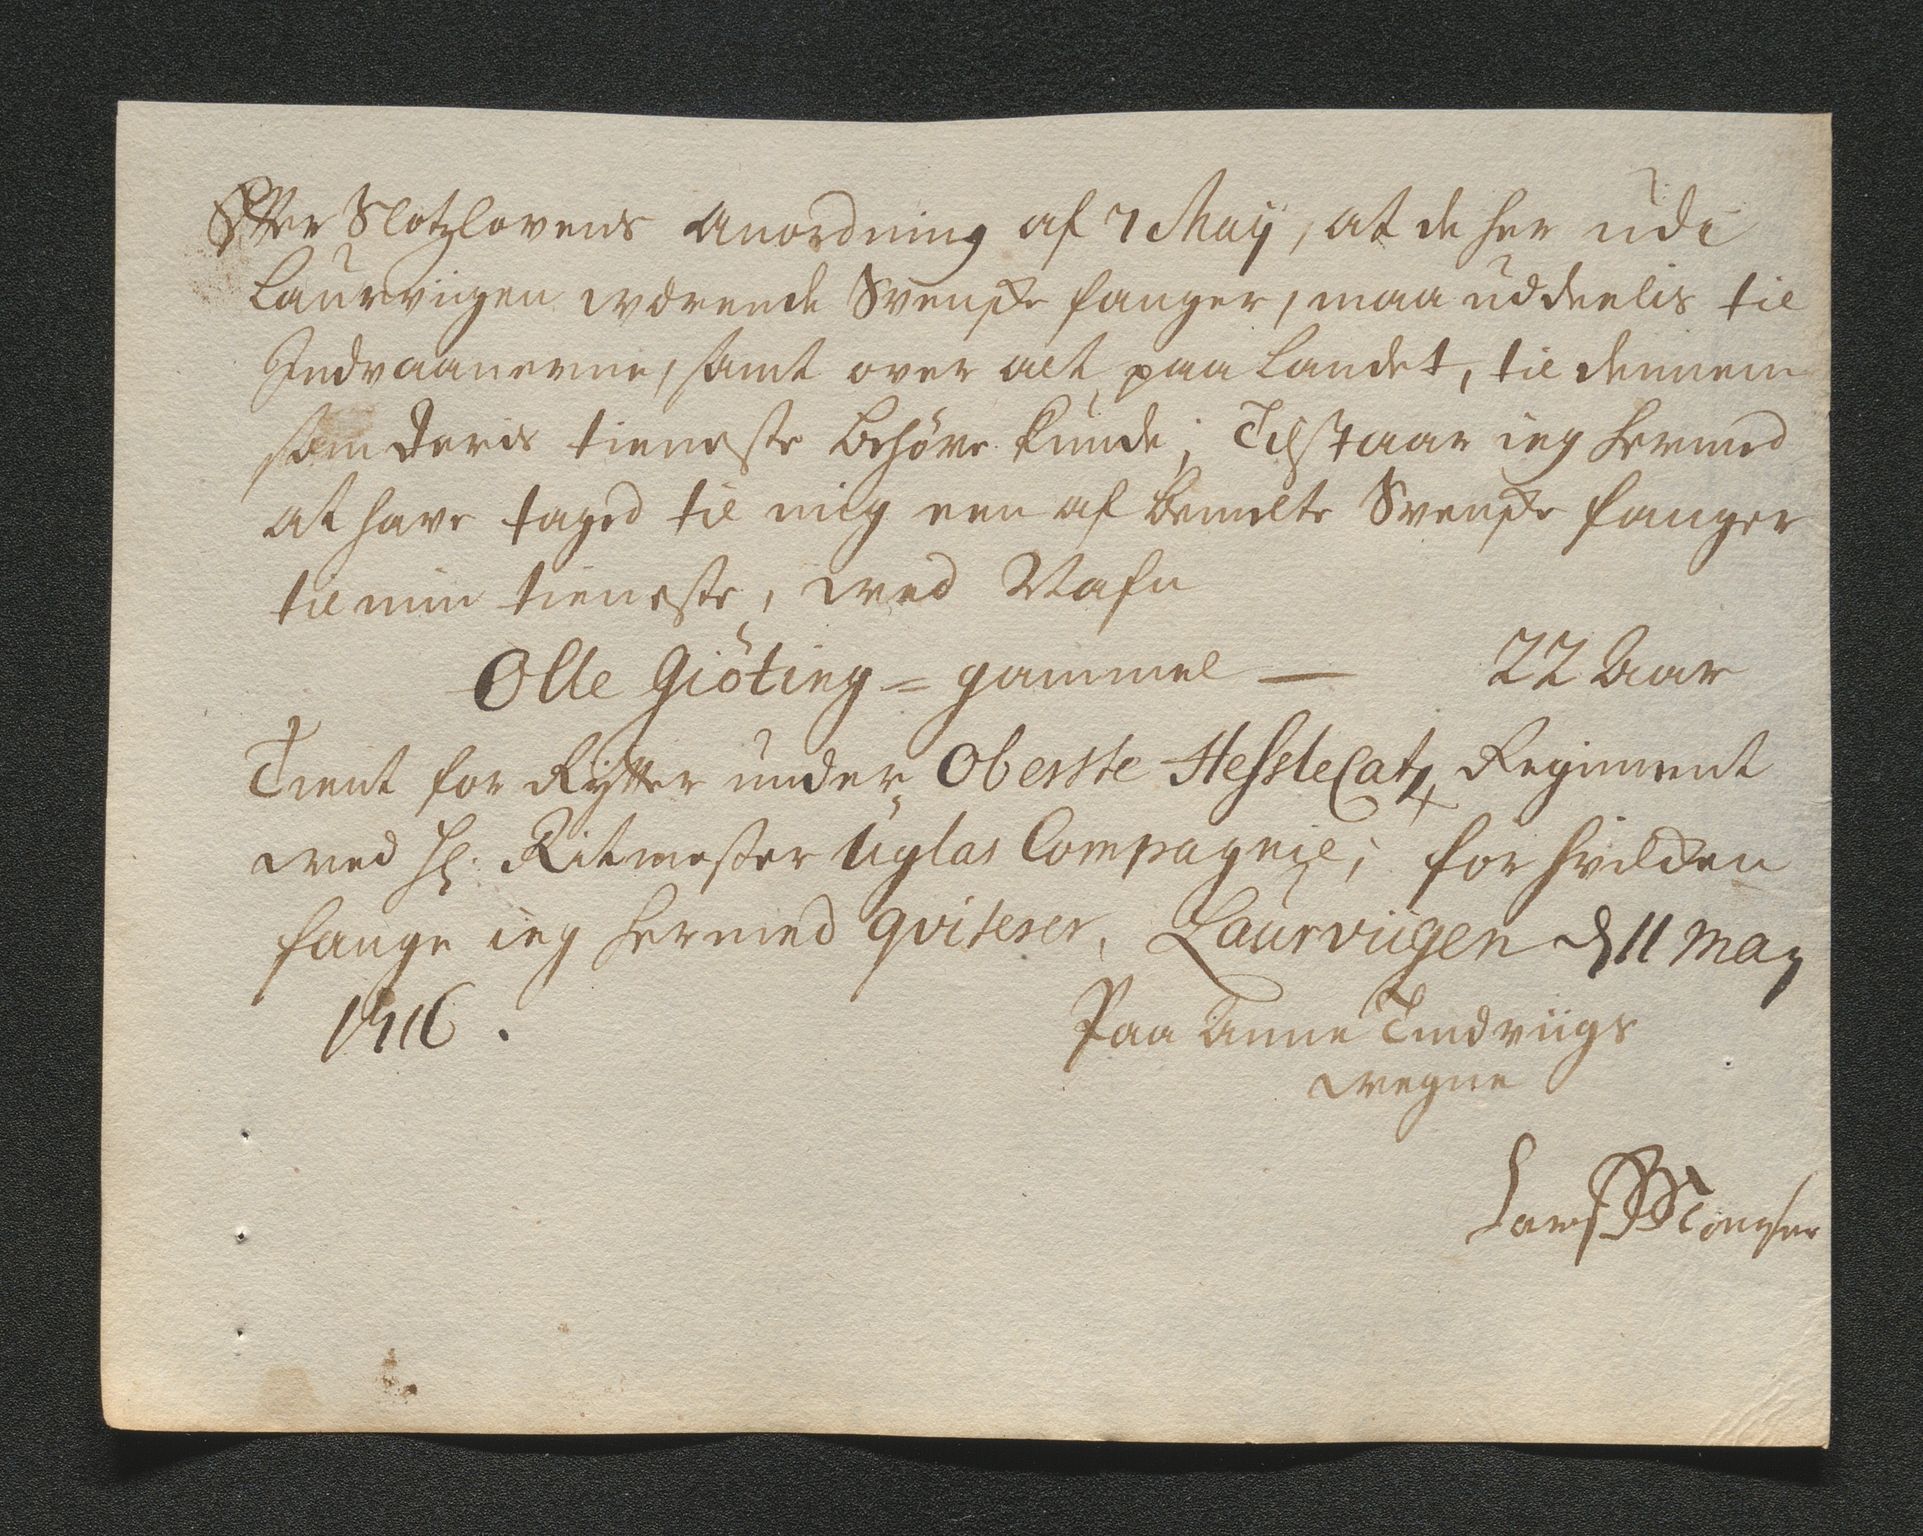 Efter Slotzlovens Anordning af 7 Maij, at de her udi
Laurviigen værende Svenske fanger, maa uddeelis til
Indvaanerne, samt over alt paa Landet, til dennem
som deris tieneste behøve kunde; Tilstaar ieg hermed
at have taged til mig een af bemelte Svenske fanger
til min tieneste, ved Nafn
Olle Giöting = gammel — 22 Aar
Tient for Rytter under Oberste Hesslecatz Regiment
ved Hr. Ritmester Uglas Compagnie; for hvilcken
fange ieg hermed qviterer, Laurviigen d 11 May
1716.
Paa Anne Tindviigs
vegne
Lars